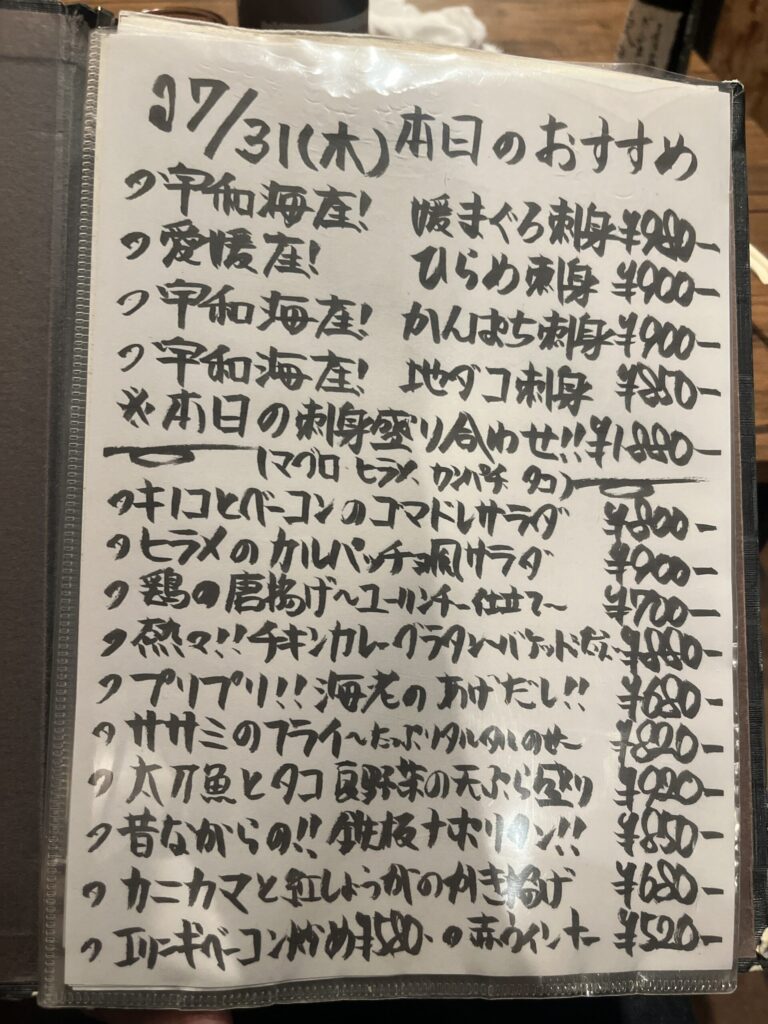 7/31(木)本日のおすすめ
宇和海産! 媛まぐろ刺身¥980-
愛媛産! ひらめ刺身 ¥900-
宇和海産! かんぱち刺身¥900-
宇和海産! 地ダコ刺身 ¥850-
※本日の刺身盛り合わせ!!¥1880-
(マグロ ヒラメ カンパチ タコ)
キノコとベーコンのゴマドレサラダ ¥800-
ヒラメのカルパッチョ風サラダ ¥900-
鶏の唐揚げ〜ユーリンチー仕立て〜 ¥700-
熱々!!チキンカレーグラタン〜バケット ¥880-
プリプリ!!海老のあげだし!! ¥680-
ササミのフライ〜たっぷりタルタルのせ〜 ¥820-
太刀魚とタコ 夏野菜の天ぷら盛り ¥920-
昔ながらの!!鉄板ナポリタン!! ¥850-
カニカマと紅しょうがのかき揚げ ¥680-
エリンギベーコン炒め¥580- 赤ウインナー ¥520-